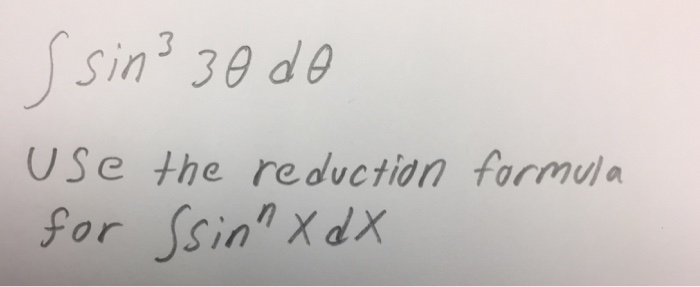 ∫ sin³ 3θ dθ
Use the reduction formula
for ∫sinⁿ x dx